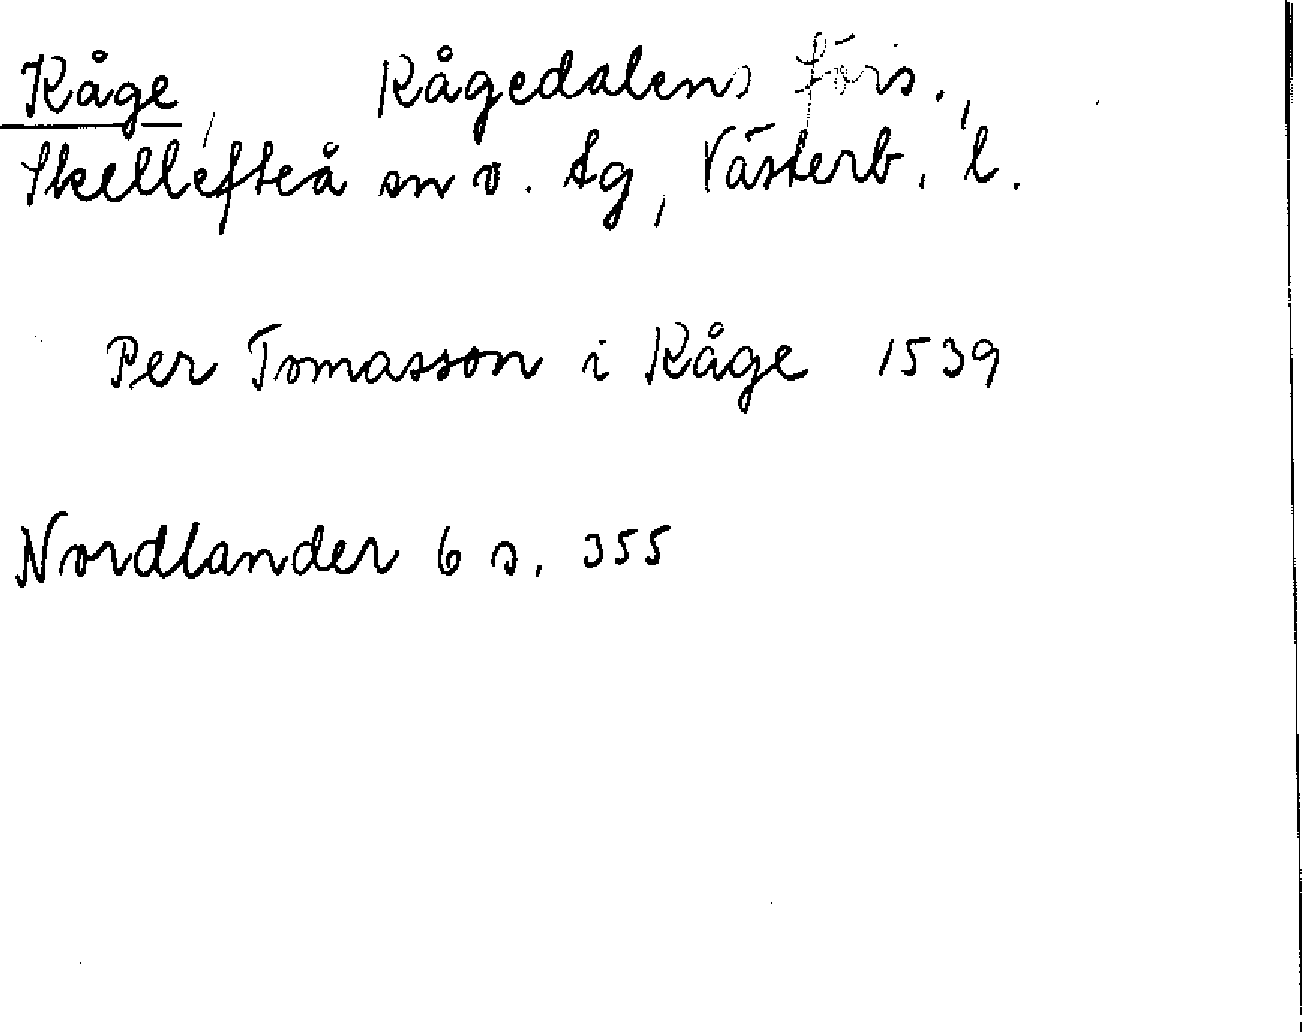 Kåge, Kågedalens förs.,
Skellefteå sn o. tg, Västerb. l.
Per Tomasson i Kåge 1539
Nordlander 6 s. 355